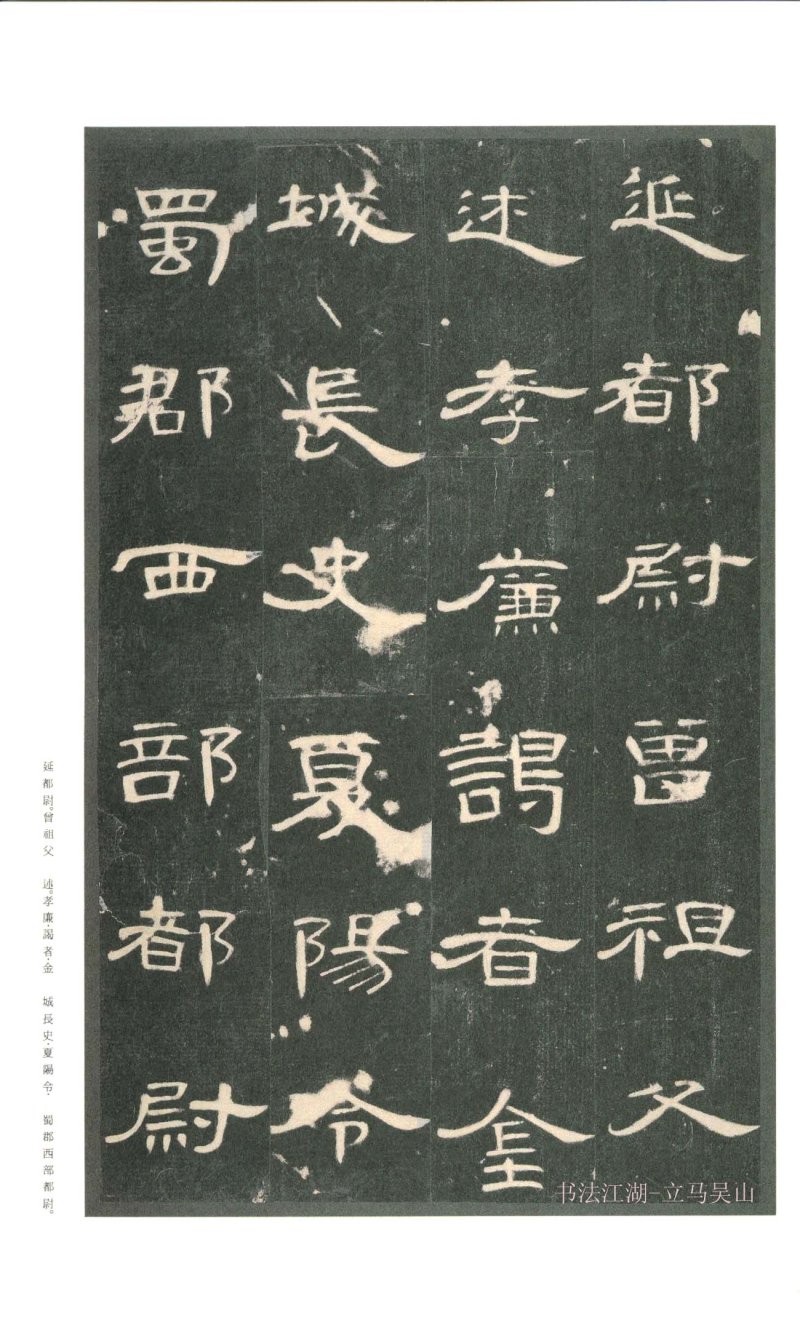 延都尉曾祖父
述孝廉謁者金
城長史夏陽令
蜀郡西部都尉
延都尉。曾祖父 述。孝廉·謁者·金 城長史·夏陽令· 蜀郡西部都尉。
书法江湖-立马吴山